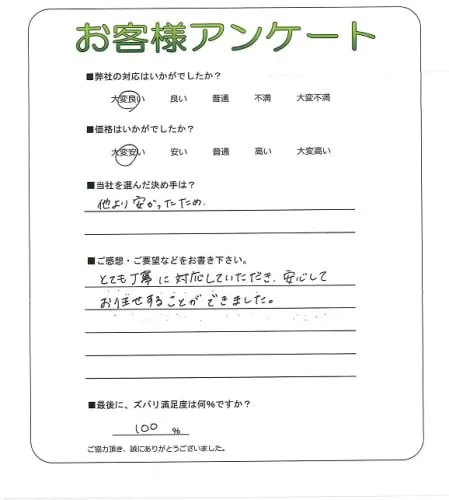 お客様アンケート
■弊社の対応はいかがでしたか？
大変良い 良い 普通 不満 大変不満
■価格はいかがでしたか？
大変安い 安い 普通 高い 大変高い
■当社を選んだ決め手は？
他より安かったため.
■ご感想・ご要望などをお書き下さい。
とても丁寧に対応していただき、安心して
お任せすることができました。
■最後に、ズバリ満足度は何%ですか？
100 %
ご協力頂き、誠にありがとうございました。